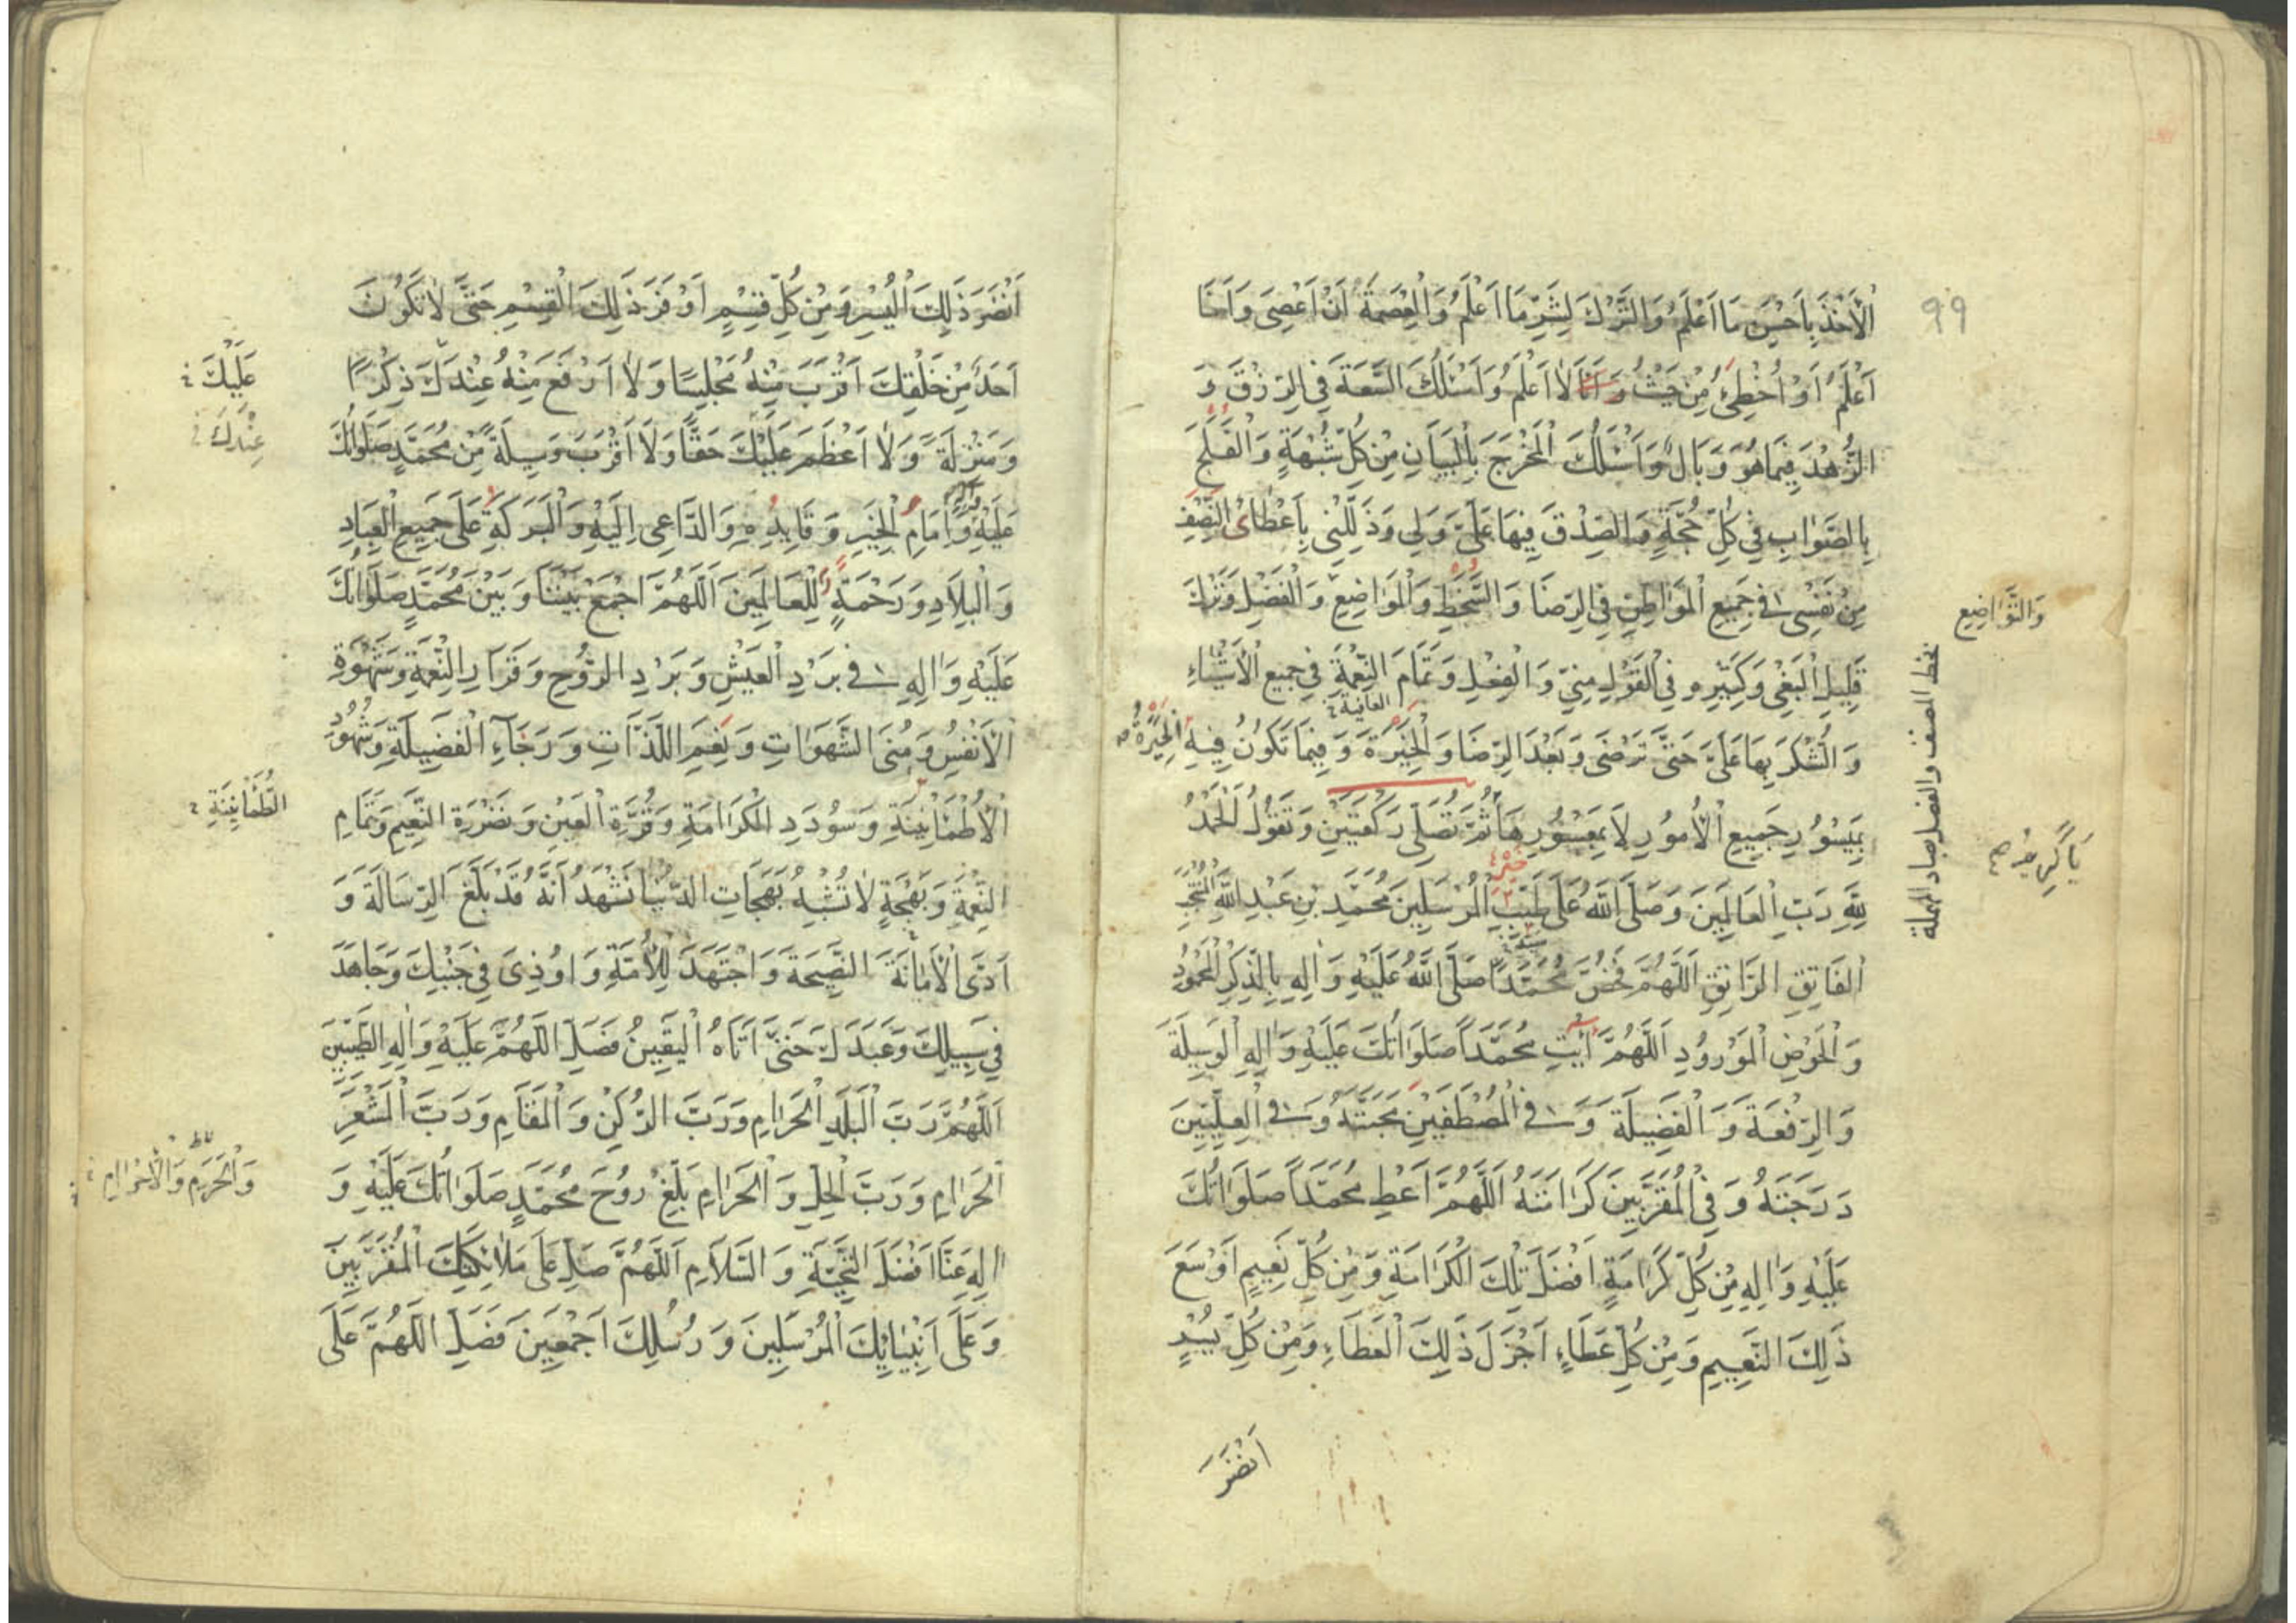 ٩٩
اَلْأَخْذَ بِاَحْسَنِ مَا اَعْلَمُ وَالتَّرْكَ لِشَرِّ مَا اَعْلَمُ وَالْعِصْمَةَ اَنْ اَعْصِىَ وَاَنَا
اَعْلَمُ اَوْ اُخْطِئَ مِنْ حَيْثُ وَاَنَا لَا اَعْلَمُ وَاَسْئَلُكَ السَّعَةَ فِى الرِّزْقِ وَ
الزُّهْدَ فِيمَا هُوَ وَبَالٌ وَاَسْئَلُكَ الْمَخْرَجَ بِالْبَيَانِ مِنْ كُلِّ شُبْهَةٍ وَالْفَلَجَ
بِالصَّوَابِ فِى كُلِّ حُجَّةٍ وَالصِّدْقَ فِيهَا عَلَىَّ وَلِى وَذَلِّلْنِى بِاَعْطَائِ النَّصَفِ
مِنْ نَفْسِى فِى جَمِيعِ الْمَوَاطِنِ فِى الرِّضَا وَالسَّخَطِ وَالْمَوَاضِعِ وَالْفَضْلِ وَتَرْكَ
وَالتَّوَاضِعِ
قَلِيلِ الْبَغْىِ وَكَثِيرِهِ فِى الْقَوْلِ مِنِّى وَالْفِعْلِ وَتَمَامَ النِّعْمَةِ فِى جَمِيعِ الْاَشْيَاءِ
بخط المصنف والفصل بصاد المهملة
العافية
وَالشُّكْرَ بِهَا عَلَىَّ حَتَّى تَرْضَى وَبَعْدَ الرِّضَا وَالْخِيَرَةَ وَفِيمَا تَكُونُ فِيهِ الْخِيَرَةُ
بِمَيْسُورِ جَمِيعِ الْاُمُورِ لَا بِمَعْسُورِهَا ثُمَّ تُصَلِّى رَكْعَتَيْنِ وَتَقُولُ الْحَمْدُ
يَا كَرِيمُ
لِلّٰهِ رَبِّ الْعَالَمِينَ وَصَلَّى اللّٰهُ عَلَى طَيِّبِ الْمُرْسَلِينَ مُحَمَّدِ بْنِ عَبْدِ اللّٰهِ الْمُنْتَجَبِ
الْفَاتِقِ الرَّاتِقِ اَللّٰهُمَّ فَخُصَّ مُحَمَّدًا صَلَّى اللّٰهُ عَلَيْهِ وَاٰلِهِ بِالذِّكْرِ الْمَحْمُودِ
وَالْحَوْضِ الْمَوْرُودِ اَللّٰهُمَّ اٰتِ مُحَمَّدًا صَلَوَاتُكَ عَلَيْهِ وَاٰلِهِ الْوَسِيلَةَ
وَالرِّفْعَةَ وَالْفَضِيلَةَ وَفِى الْمُصْطَفَيْنَ مَحَبَّتَهُ وَفِى الْعِلِّيِّينَ
دَرَجَتَهُ وَفِى الْمُقَرَّبِينَ كَرَامَتَهُ اَللّٰهُمَّ اَعْطِ مُحَمَّدًا صَلَوَاتُكَ
عَلَيْهِ وَاٰلِهِ مِنْ كُلِّ كَرَامَةٍ اَفْضَلَ تِلْكَ الْكَرَامَةِ وَمِنْ كُلِّ نَعِيمٍ اَوْسَعَ
ذٰلِكَ النَّعِيمِ وَمِنْ كُلِّ عَطَاءٍ اَجْزَلَ ذٰلِكَ الْعَطَاءِ وَمِنْ كُلِّ يُسْرٍ
اَنْضَرَ
اَنْضَرَ ذٰلِكَ الْيُسْرِ وَمِنْ كُلِّ قِسْمٍ اَوْفَرَ ذٰلِكَ الْقِسْمِ حَتَّى لَا يَكُونَ
اَحَدٌ مِنْ خَلْقِكَ اَقْرَبَ مِنْهُ مَجْلِسًا وَلَا اَرْفَعَ مِنْهُ عِنْدَكَ ذِكْرًا
عَلَيْكَ
وَمَنْزِلَةً وَلَا اَعْظَمَ عَلَيْكَ حَقًّا وَلَا اَقْرَبَ وَسِيلَةً مِنْ مُحَمَّدٍ صَلَوَاتُكَ
عِنْدَكَ
عَلَيْهِ وَاٰلِهِ اِمَامِ الْخَيْرِ وَقَايِدِهِ وَالدَّاعِى اِلَيْهِ وَالْبَرَكَةِ عَلَى جَمِيعِ الْعِبَادِ
وَالْبِلَادِ وَرَحْمَةٍ لِلْعَالَمِينَ اَللّٰهُمَّ اجْمَعْ بَيْنَنَا وَبَيْنَ مُحَمَّدٍ صَلَوَاتُكَ
عَلَيْهِ وَاٰلِهِ فِى بَرْدِ الْعَيْشِ وَبَرْدِ الرَّوْحِ وَقَرَارِ النِّعْمَةِ وَشَهْوَةِ
الْاَنْفُسِ وَمُنَى الشَّهَوَاتِ وَنِعَمِ اللَّذَّاتِ وَرَجَاءِ الْفَضِيلَةِ وَشُهُودِ
الْاُطْمَانِينَةِ وَسُودَدِ الْكَرَامَةِ وَقُرَّةِ الْعَيْنِ وَنَضْرَةِ النَّعِيمِ وَتَمَامِ
الطُّمَأْنِينَةِ
النِّعْمَةِ وَبَهْجَةٍ لَا تُشْبِهُ بَهَجَاتِ الدُّنْيَا نَشْهَدُ اَنَّهُ قَدْ بَلَّغَ الرِّسَالَةَ وَ
اَدَّى الْاَمَانَةَ النَّصِيحَةَ وَاجْتَهَدَ لِلْاُمَّةِ وَاُوذِىَ فِى جَنْبِكَ وَجَاهَدَ
فِى سَبِيلِكَ وَعَبَدَكَ حَتَّى اَتَاهُ الْيَقِينُ فَصَلِّ اللّٰهُمَّ عَلَيْهِ وَاٰلِهِ الطَّيِّبِينَ
اَللّٰهُمَّ رَبَّ الْبَلَدِ الْحَرَامِ وَرَبَّ الرُّكْنِ وَالْمَقَامِ وَرَبَّ الْمَشْعَرِ
الْحَرَامِ وَرَبَّ الْحِلِّ وَالْحَرَامِ بَلِّغْ رُوحَ مُحَمَّدٍ صَلَوَاتُكَ عَلَيْهِ وَ
وَالْحَرَمِ وَالْاِحْرَامِ
اٰلِهِ عَنَّا اَفْضَلَ التَّحِيَّةِ وَالسَّلَامِ اَللّٰهُمَّ صَلِّ عَلَى مَلَائِكَتِكَ الْمُقَرَّبِينَ
وَعَلَى اَنْبِيَائِكَ الْمُرْسَلِينَ وَرُسُلِكَ اَجْمَعِينَ فَصَلِّ اللّٰهُمَّ عَلَى